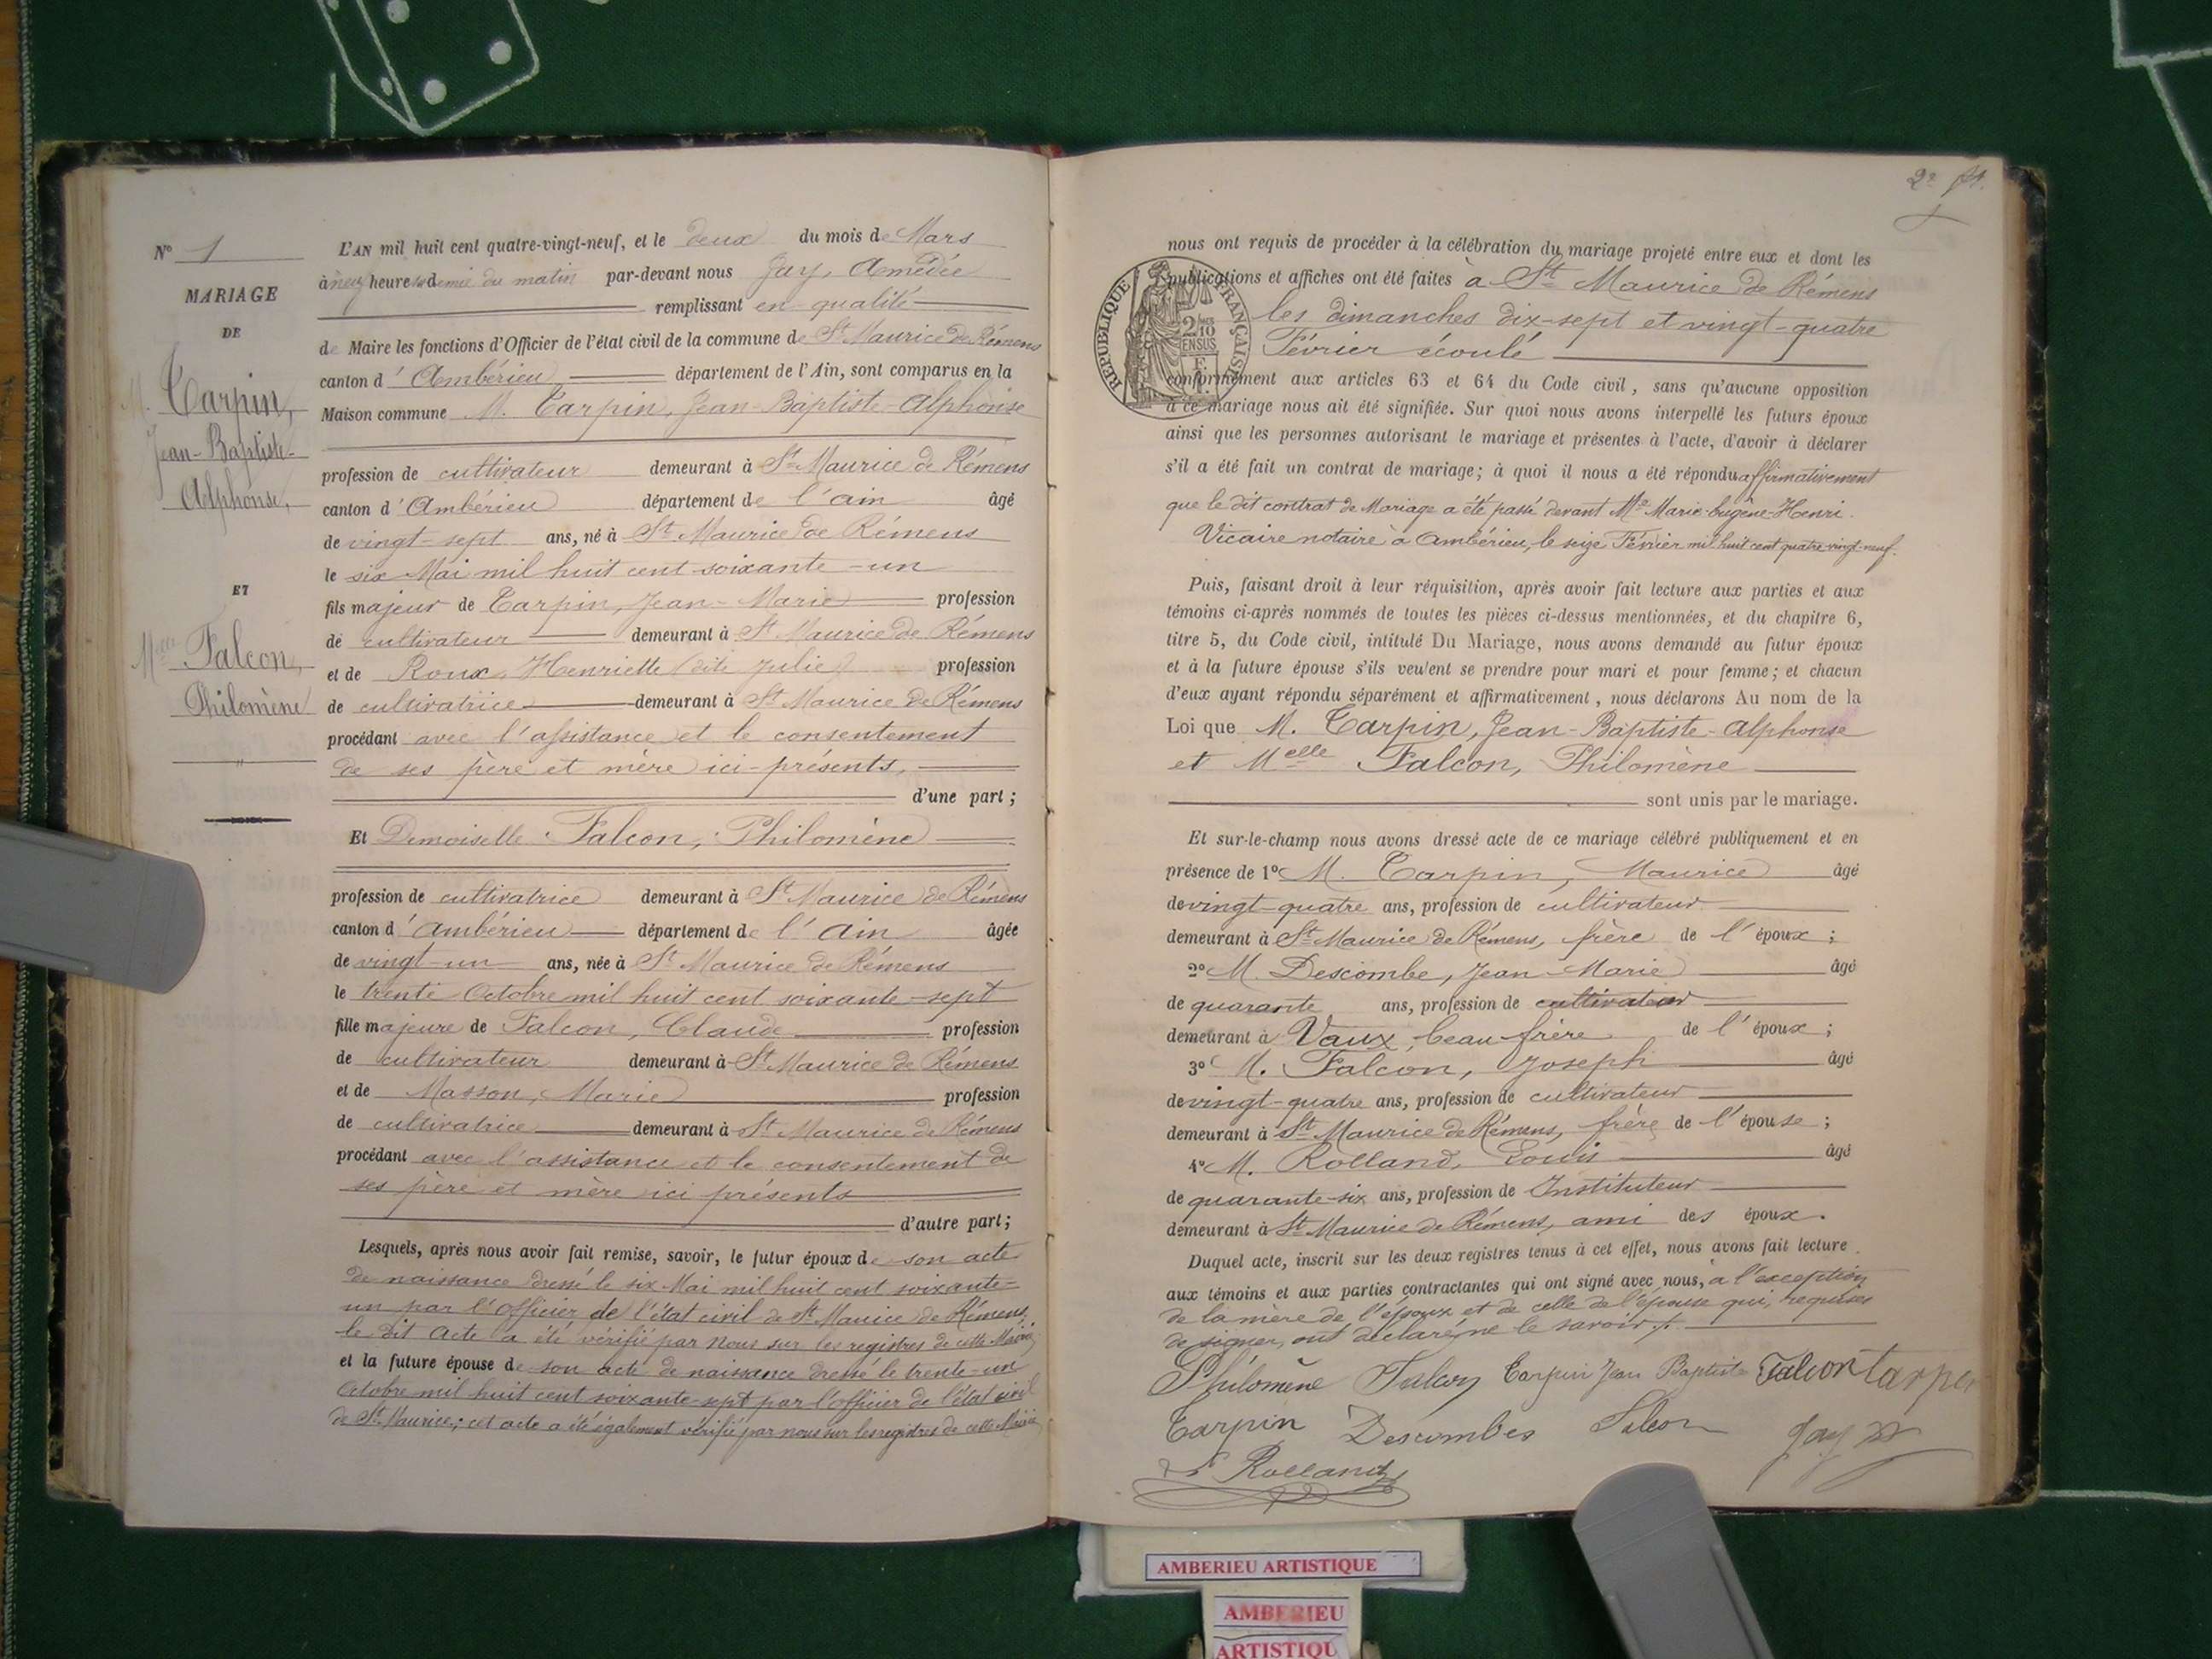 N° 1
MARIAGE
DE
M. Carpin,
Jean-Baptiste-
Alphonse,
ET
Melle Falcon,
Philomène
L'AN mil huit cent quatre-vingt-neuf, et le deux du mois de Mars
à neuf heures et demie du matin par-devant nous Jay, Amédée
remplissant en qualité
de Maire les fonctions d'Officier de l'état civil de la commune de St Maurice de Rémens
canton d'Ambérieu département de l'Ain, sont comparus en la
Maison commune M. Carpin, Jean-Baptiste-Alphonse
profession de cultivateur demeurant à St Maurice de Rémens
canton d'Ambérieu département de l'ain âgé
de vingt-sept ans, né à St Maurice de Rémens
le six Mai mil huit cent soixante-un
fils majeur de Carpin, Jean-Marie profession
de cultivateur demeurant à St Maurice de Rémens
et de Roux, Henriette (dite Julie) profession
de cultivatrice demeurant à St Maurice de Rémens
procédant avec l'assistance et le consentement
de ses père et mère ici-présents,
d'une part;
Et Demoiselle Falcon, Philomène
profession de cultivatrice demeurant à St Maurice de Rémens
canton d'ambérieu département de l'ain âgée
de vingt-un ans, née à St Maurice de Rémens
le trente Octobre mil huit cent soixante-sept
fille majeure de Falcon, Claude profession
de cultivateur demeurant à St Maurice de Rémens
et de Masson, Marie profession
de cultivatrice demeurant à St Maurice de Rémens
procédant avec l'assistance et le consentement de
ses père et mère ici présents
d'autre part;
Lesquels, après nous avoir fait remise, savoir, le futur époux de son acte
de naissance dressé le six Mai mil huit cent soixante-
un par l'officier de l'état civil de St Maurice de Rémens,
le dit acte a été vérifié par nous sur les registres de cette Mairie,
et la future épouse de son acte de naissance dressé le trente-un
Octobre mil huit cent soixante-sept par l'officier de l'état civil
de St Maurice; cet acte a été également vérifié par nous sur les registres de cette Mairie
2e ft.
nous ont requis de procéder à la célébration du mariage projeté entre eux et dont les
publications et affiches ont été faites à St Maurice de Rémens
les dimanches dix-sept et vingt-quatre
Février écoulé
RÉPUBLIQUE FRANÇAISE
conformément aux articles 63 et 64 du Code civil, sans qu'aucune opposition
à ce mariage nous ait été signifiée. Sur quoi nous avons interpellé les futurs époux
ainsi que les personnes autorisant le mariage et présentes à l'acte, d'avoir à déclarer
s'il a été fait un contrat de mariage; à quoi il nous a été répondu affirmativement
que le dit contrat de Mariage a été passé devant Me Marie-Eugène-Henri
Vicaire notaire à Ambérieu, le seize Février mil huit cent quatre-vingt-neuf.
Puis, faisant droit à leur réquisition, après avoir fait lecture aux parties et aux
témoins ci-après nommés de toutes les pièces ci-dessus mentionnées, et du chapitre 6,
titre 5, du Code civil, intitulé Du Mariage, nous avons demandé au futur époux
et à la future épouse s'ils veulent se prendre pour mari et pour femme; et chacun
d'eux ayant répondu séparément et affirmativement, nous déclarons Au nom de la
Loi que M. Carpin, Jean-Baptiste-Alphonse
et Melle Falcon, Philomène
sont unis par le mariage.
Et sur-le-champ nous avons dressé acte de ce mariage célébré publiquement et en
présence de 1° M. Carpin, Maurice âgé
de vingt-quatre ans, profession de cultivateur
demeurant à St Maurice de Rémens, frère de l'époux;
2° M. Descombe, Jean-Marie âgé
de quarante ans, profession de cultivateur
demeurant à Vaux, beau-frère de l'époux;
3° M. Falcon, Joseph âgé
de vingt-quatre ans, profession de cultivateur
demeurant à St Maurice de Rémens, frère de l'épouse;
4° M. Rolland, Louis âgé
de quarante-six ans, profession de Instituteur
demeurant à St Maurice de Rémens, ami des époux.
Duquel acte, inscrit sur les deux registres tenus à cet effet, nous avons fait lecture
aux témoins et aux parties contractantes qui ont signé avec nous, à l'exception
de la mère de l'époux et de celle de l'épouse qui, requises
de signer, ont déclaré ne le savoir.
Philomène Falcon Carpin Jean Baptiste Falcon Carpin
Carpin Descombes Falcon Jay
Rolland
AMBERIEU ARTISTIQUE
AMBERIEU
ARTISTIQU